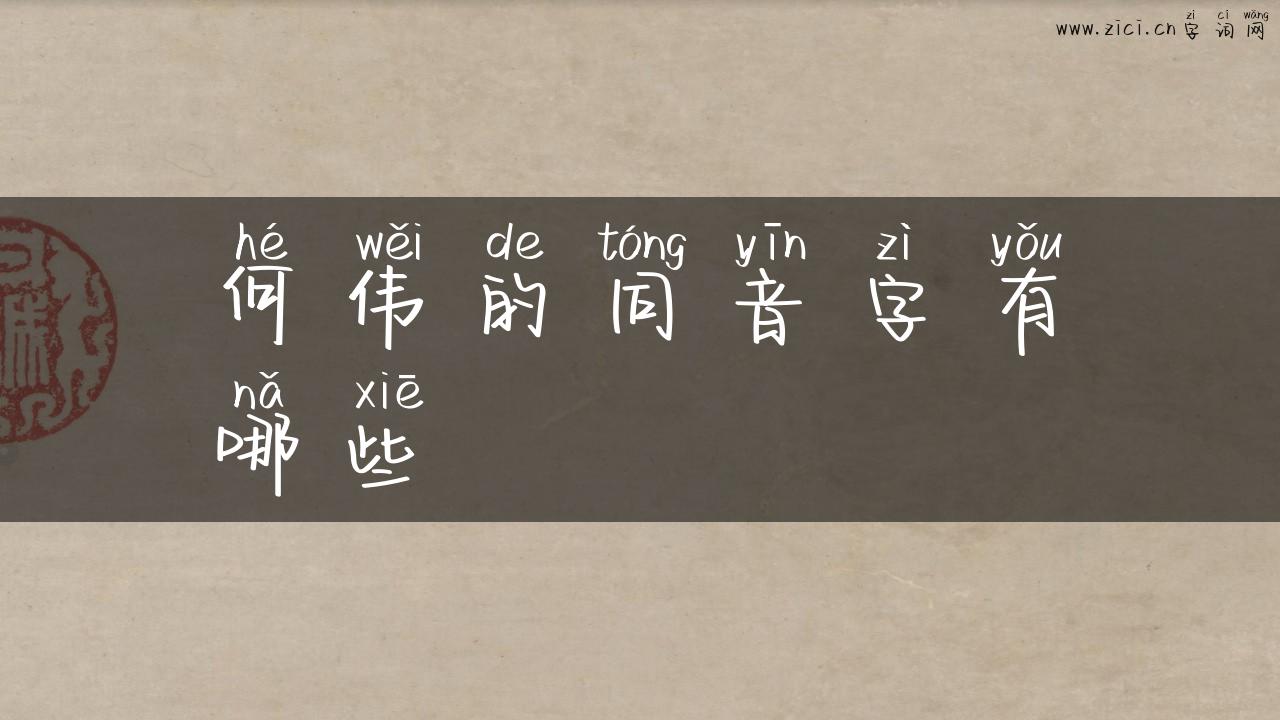 zì cí wǎng
www.zici.cn 字 词 网
hé wěi de tóng yīn zì yǒu
何 伟 的 同 音 字 有
nǎ xiē
哪 些